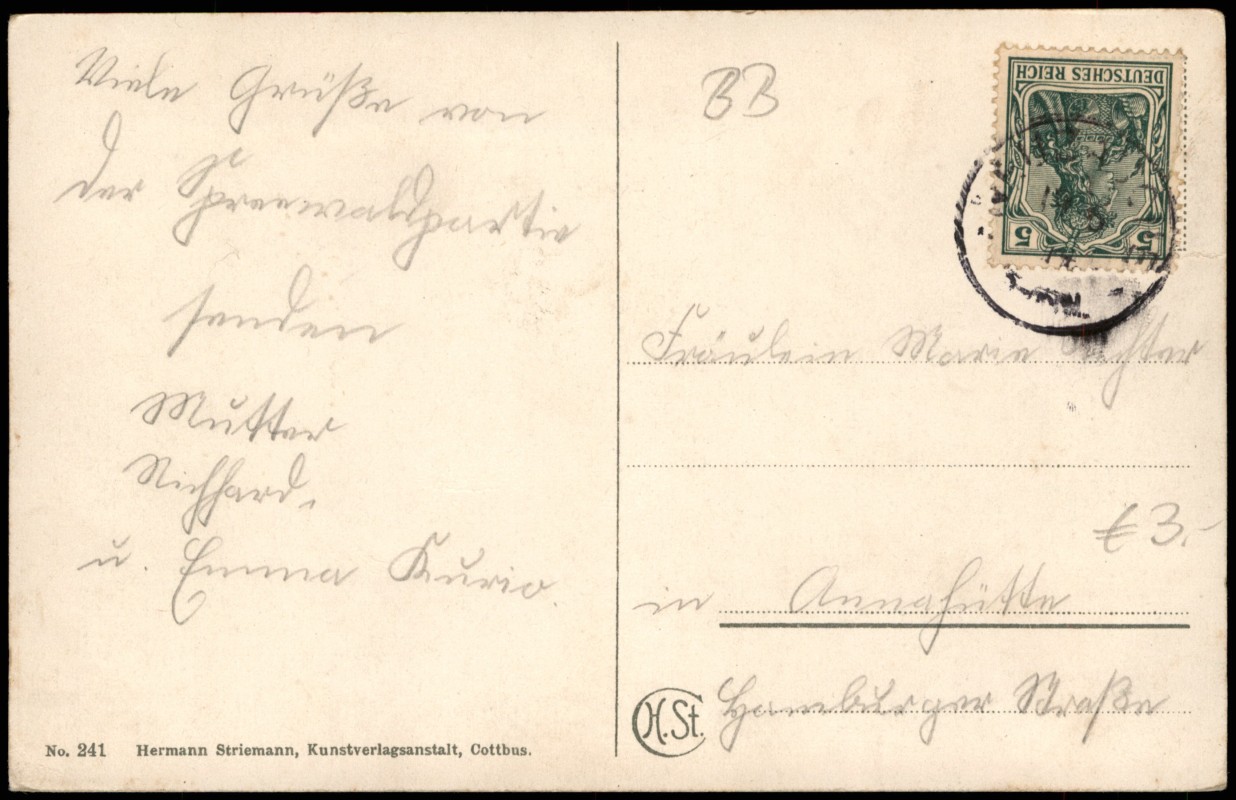 Viele Grüße von
der Spreewaldpartie
senden
Mutter
Richhard,
u. Emma Kurio.
No. 241 Hermann Striemann, Kunstverlagsanstalt, Cottbus.
BB
DEUTSCHES REICH
5 5
Fräulein Marie
€ 3.-
in Annahütte
Hamburger Straße
H.St.